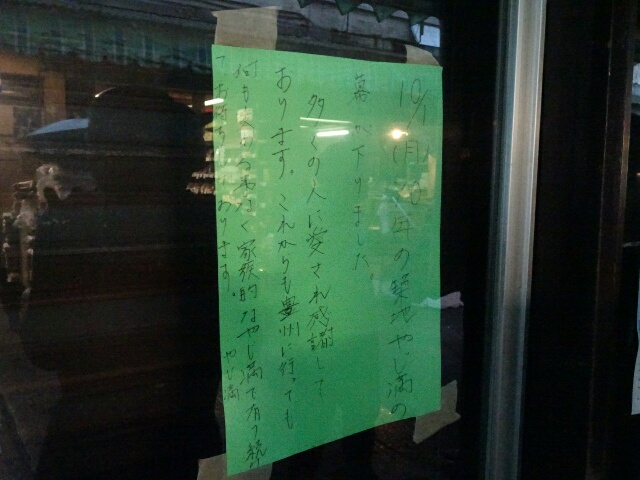 10/1(月) 70年の築地やじ満の
幕が下りました。
多くの人に愛され感謝して
あります。これからも豊州に行っても
何も変わる事なく家族的なやじ満で有り続け
ております。
やじ満